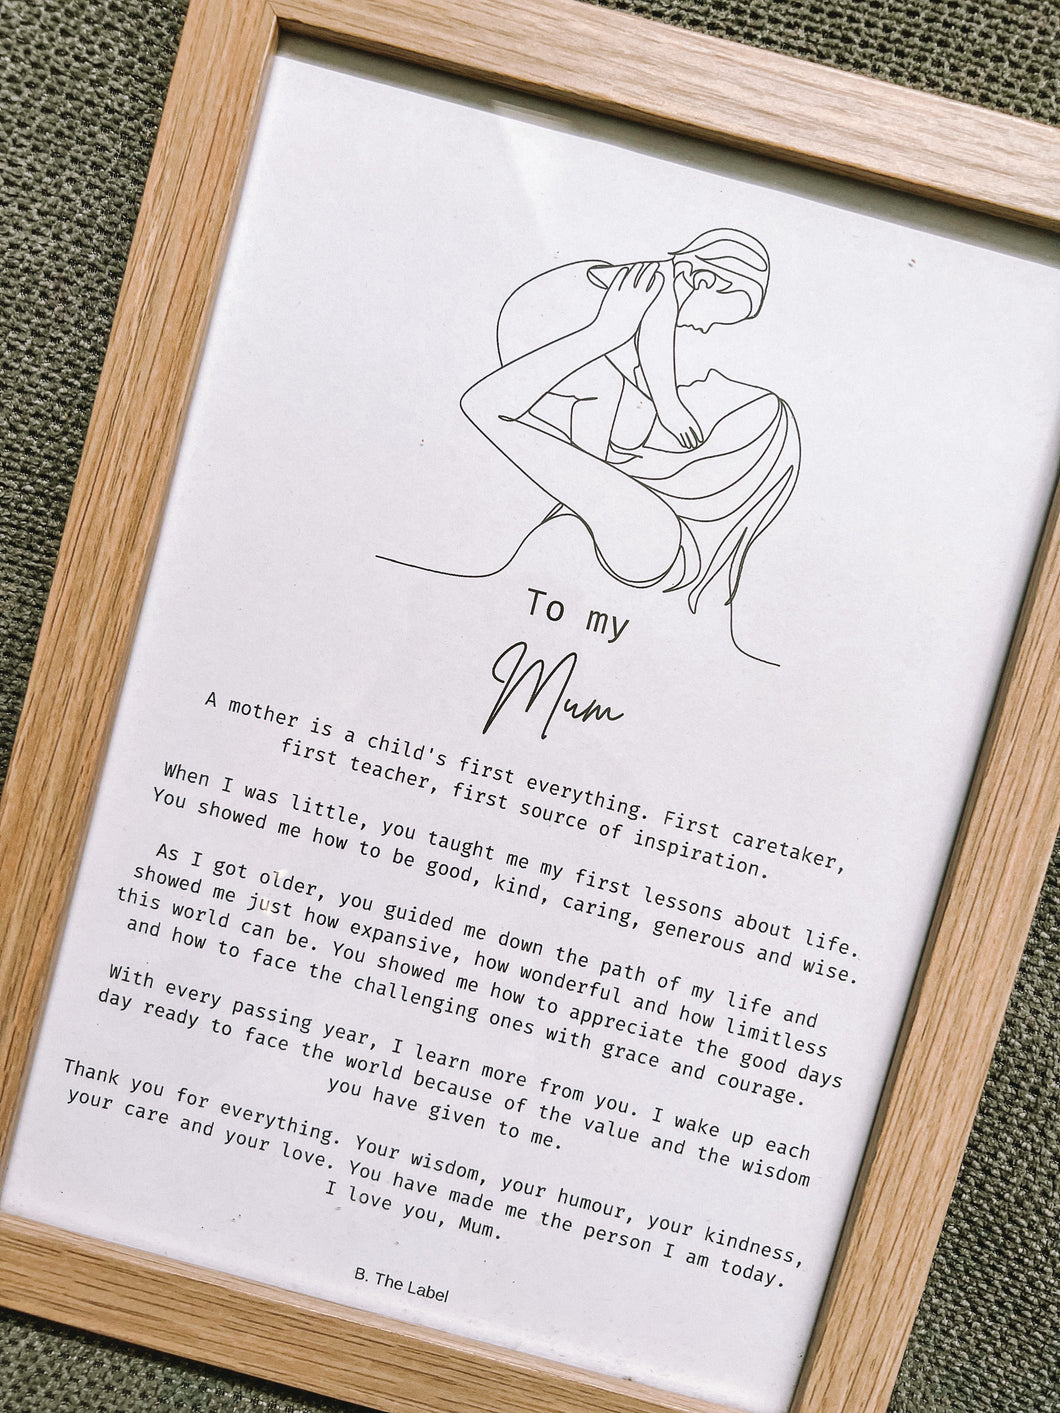 To my
Mum
A mother is a child's first everything. First caretaker,
first teacher, first source of inspiration.
When I was little, you taught me my first lessons about life.
You showed me how to be good, kind, caring, generous and wise.
As I got older, you guided me down the path of my life and
showed me just how expansive, how wonderful and how limitless
this world can be. You showed me how to appreciate the good days
and how to face the challenging ones with grace and courage.
With every passing year, I learn more from you. I wake up each
day ready to face the world because of the value and the wisdom
you have given to me.
Thank you for everything. Your wisdom, your humour, your kindness,
your care and your love. You have made me the person I am today.
I love you, Mum.
B. The Label